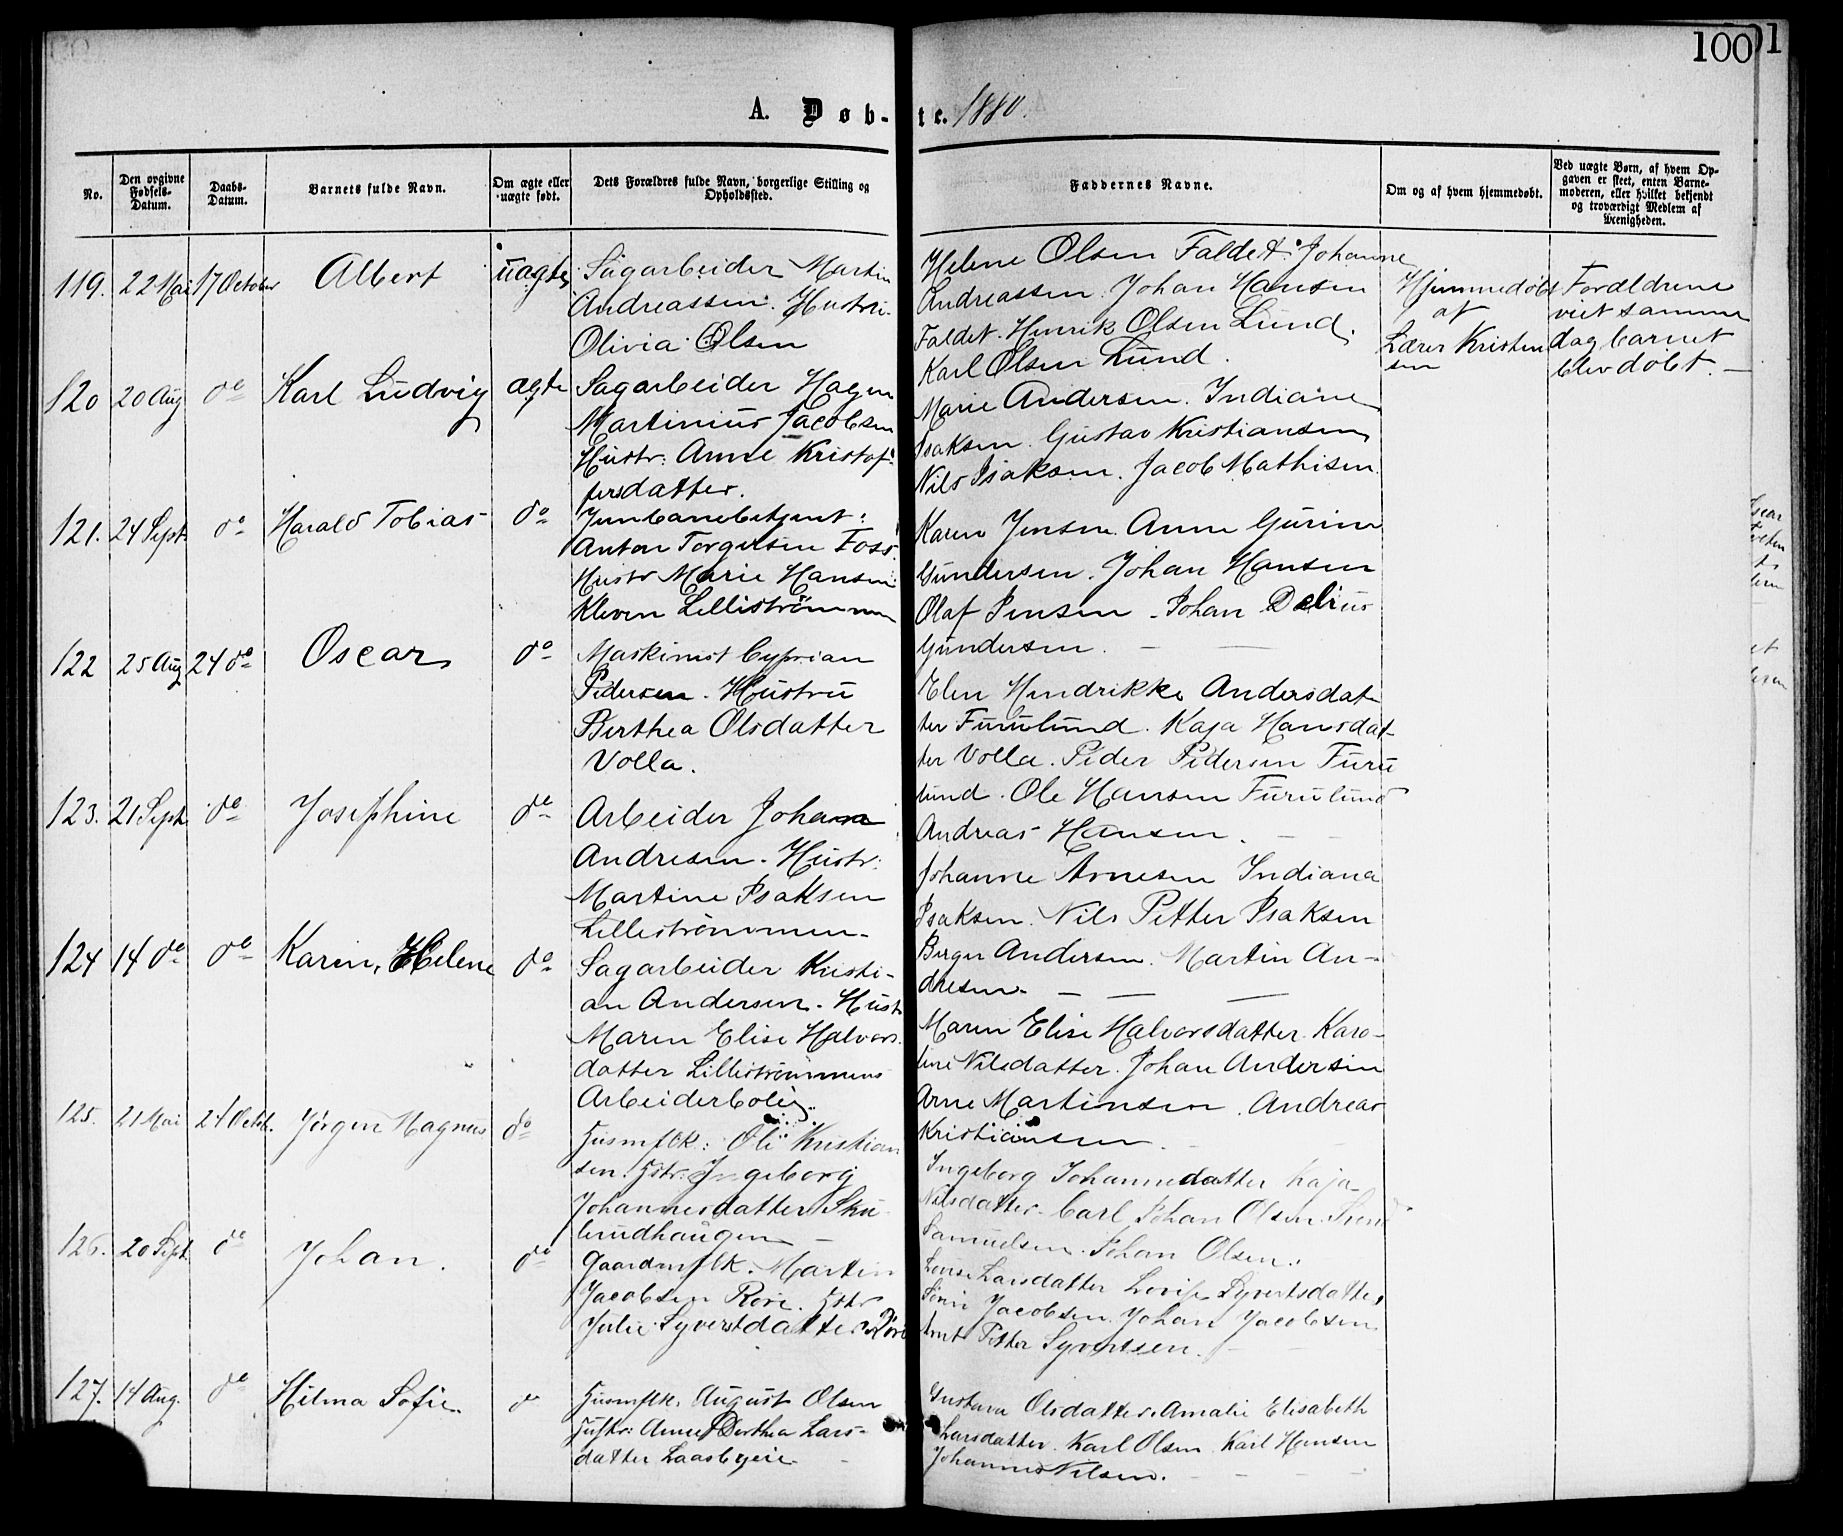 100
101
A. Døb-te. 1880.
No.
Den opgivne Fødsels-Datum.
Daabs-Datum.
Barnets fulde Navn.
Om ægte eller uægte født.
Dets Forældres fulde Navn, borgerlige Stilling og Opholdssted.
Faddernes Navne.
Om og af hvem hjemmedøbt.
Ved uægte Børn, af hvem Opgaven er skeet, enten Barnemoderen, eller hvilket bekjendt og troværdigt Medlem af Menigheden.
119. 22 Mai 17 October Albert uægte
Sagarbeider Martin
Andreassen. Hustru
Olivia Olsen
Helene Olsen Faldet. Johanne
Andreassen. Johan Hansen
Faldet. Henrik Olsen Lund.
Karl Olsen Lund.
Hjemmedøbt
af
Lærer Kristen
sen
Forældrene
viet samme
dag barnet
blev døbt. —
120 20 Aug do Karl Ludvig ægte
Sagarbeider Hagen
Martinius Jacobsen
Hustr: Anne Kristof-
fersdatter.
Marie Andersen. Indiane
Isaksen. Gustav Kristiansen
Nils Isaksen. Jacob Mathisen.
121. 24 Sept do Harald Tobias do
Jernbanebetjent:
Anton Torgersen Foss.
Hustr Marie Hansen
Kleven Lilliströmmen
Karen Jensen. Anne Gurine
Gundersen. Johan Hansen
Olaf Jensen - Johan Delius
Gundersen. — —
122 25 Aug 24 do Oscar do
Maskinist Cyprian
Pedersen. Hustru
Berthea Olsdatter
Volla.
Elen Hendrikke Andersdat-
ter Furulund. Kaja Hansdat-
ter Volla. Peder Pedersen Furu
lund. Ole Hansen Furulund
Andreas Hansen. — —
123. 21 Sept do Josephine do
Arbeider Johan
Andresen. Hustr:
Martine Isaksen
Lilleströmmen-
Johanne Arnesen Indiana
Isaksen. Nils Petter Isaksen
Birger Andersen. Martin An-
dresen. — — —
124 14 do do Karen Helene do
Sagarbeider Kristi-
an Andersen. Hust
Maren Elise Halvors
datter Lilleströmmens
Arbeiderbolig.
Maren Elise Halvorsdatter. Karo-
line Nilsdatter. Johan Andersen
Arne Martinsen. Andreas
Kristiansen.
125. 21 Mai 24 Octob. Jørgen Magnus do
Husmflk: Ole Kristian
sen. Hstr: Ingeborg
Johannesdatter Sku-
lerudhaugen —
Ingeborg Johannesdatter Kaja
Nilsdatter. Carl Johan Olsen.
Samuelsen. Johan Olsen.
126. 20 Sept. do Johan. do
Gaardmflk. Martin
Jacobsen Hstr
Julie Syverstdatter
Larsdatter Lovise Syvertsdatter
Jacobsen. Johan Jacobsen
Petter Syvertsen.
127. 14 Aug. do Hilma Sofie. do
Husmflk. August Olsen
Hustr: Anne Dorthea Lars-
datter Laasbyeie
Gustava Olsdatter. Amalie Elisabeth
Larsdatter. Karl Olsen. Karl Hansen
Johannes Nilsen.